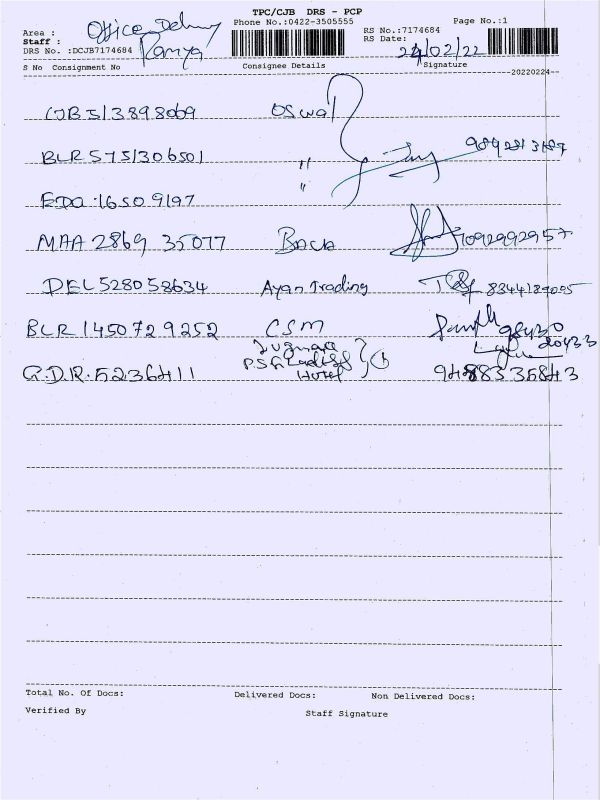 TPC/CJB DRS - PCP
Phone No.:0422-3505555 Page No.:1
Area : Office
Staff : Ramya
DRS No. :DCJB7174684
RS No.:7174684
RS Date: 24/02/22
S No Consignment No Consignee Details Signature
20220224
CJB 513898069 Oswal
BLR 5751306501 " 9892813187
EDO 16509197 "
MAA 2869 35077 Baca 1092992957
DEL 528058634 Ayan Trading 8344189095
BLR 1450729252 CSM 98430
20433
P.S.G Ladies
G.D.R. 5236411 Hotel 1 9488335843
Total No. Of Docs: Delivered Docs: Non Delivered Docs:
Verified By Staff Signature